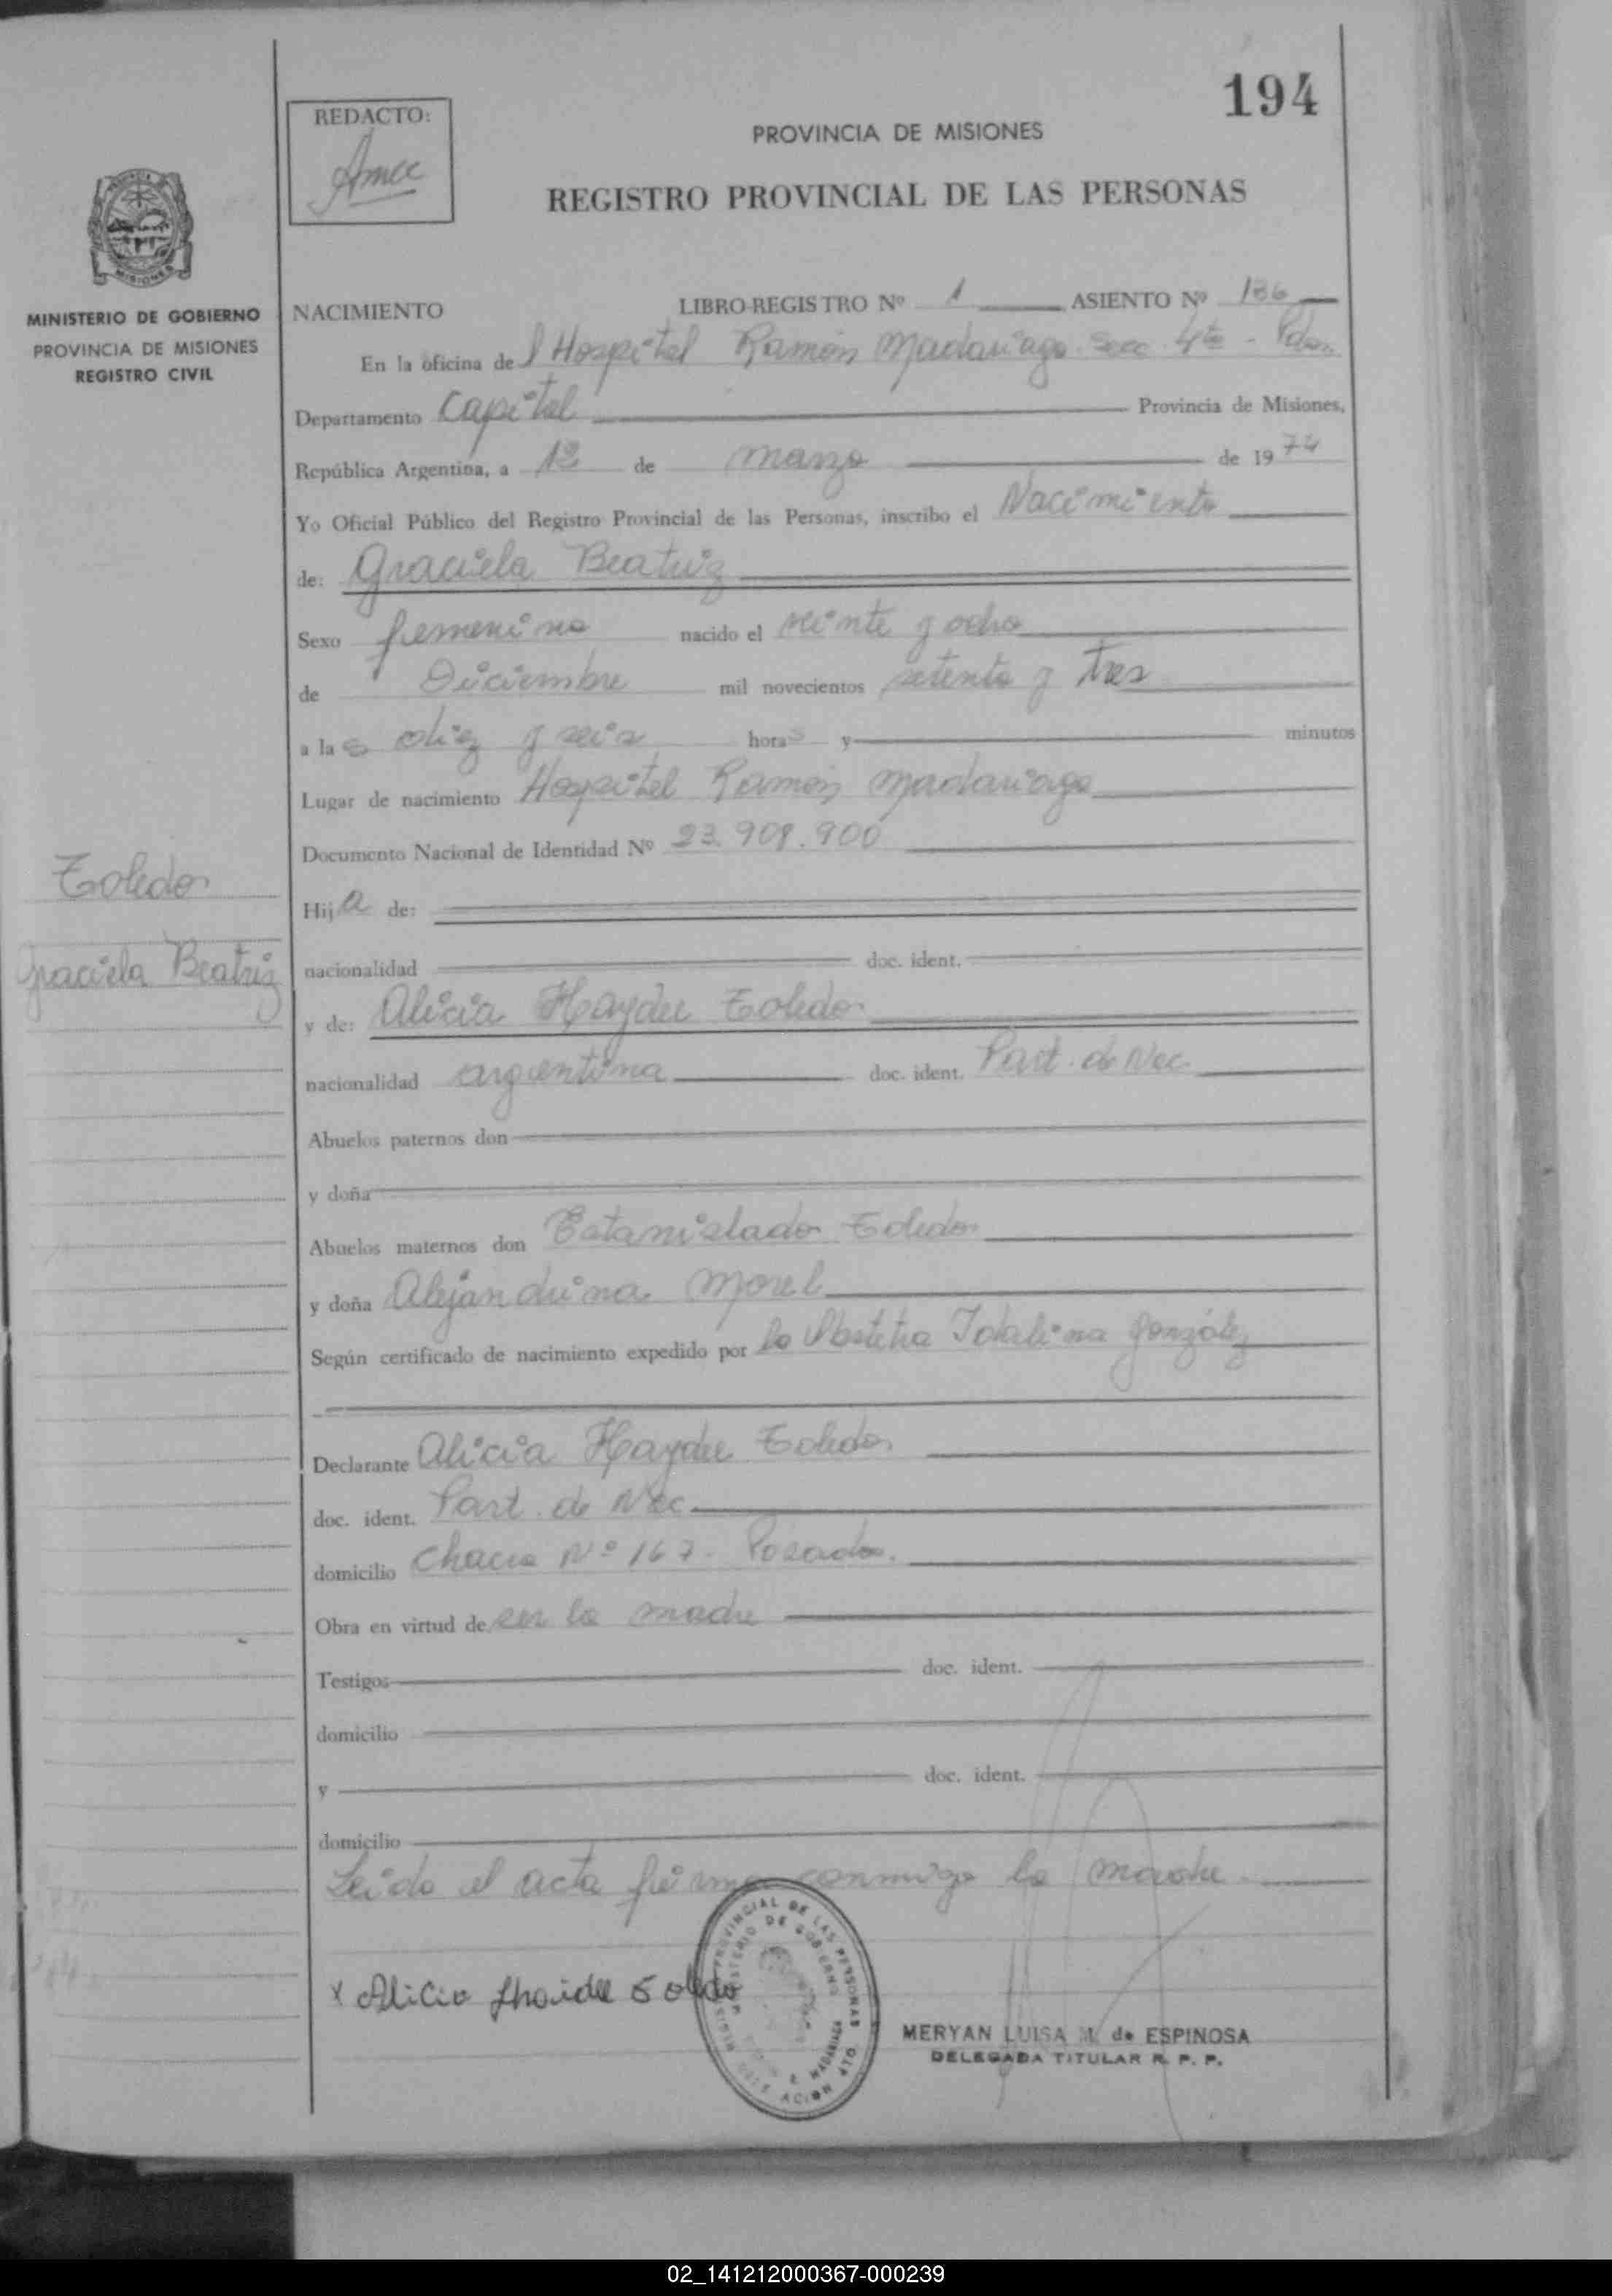 194
REDACTO:
Amec
PROVINCIA DE MISIONES
REGISTRO PROVINCIAL DE LAS PERSONAS
MISIONES
MINISTERIO DE GOBIERNO
PROVINCIA DE MISIONES
REGISTRO CIVIL
NACIMIENTO LIBRO-REGISTRO Nº 1 ASIENTO Nº 186
En la oficina de l Hospital Ramón Madariaga. Secc 4ta - Pdas
Departamento Capital Provincia de Misiones,
República Argentina, a 12 de marzo de 1974
Yo Oficial Público del Registro Provincial de las Personas, inscribo el Nacimiento
de: Graciela Beatriz
Sexo femenino nacido el veinte y ocho
de Diciembre mil novecientos setenta y tres
a las diez y seis horas y minutos
Lugar de nacimiento Hospital Ramón Madariaga
Documento Nacional de Identidad Nº 23.908.900
Toledo
Graciela Beatriz
Hija de:
nacionalidad doc. ident.
y de: Alicia Haydee Toledo
nacionalidad argentina doc. ident. Part. de Nac.
Abuelos paternos don
y doña
Abuelos maternos don Estanislado Toledo
y doña Alejandrina Morel
Según certificado de nacimiento expedido por la Obstetra Idalina González
Declarante Alicia Haydee Toledo
doc. ident. Part. de Nac.
domicilio Chacra Nº 167. Posadas.
Obra en virtud de ser la madre
Testigos doc. ident.
domicilio
y doc. ident.
domicilio
Leída el acta firma conmigo la madre.
x Alicia Hhaidee Toledo
PROVINCIAL DE LAS PERSONAS
MERYAN LUISA M. de ESPINOSA
DELEGADA TITULAR R. P. P.
02_141212000367-000239